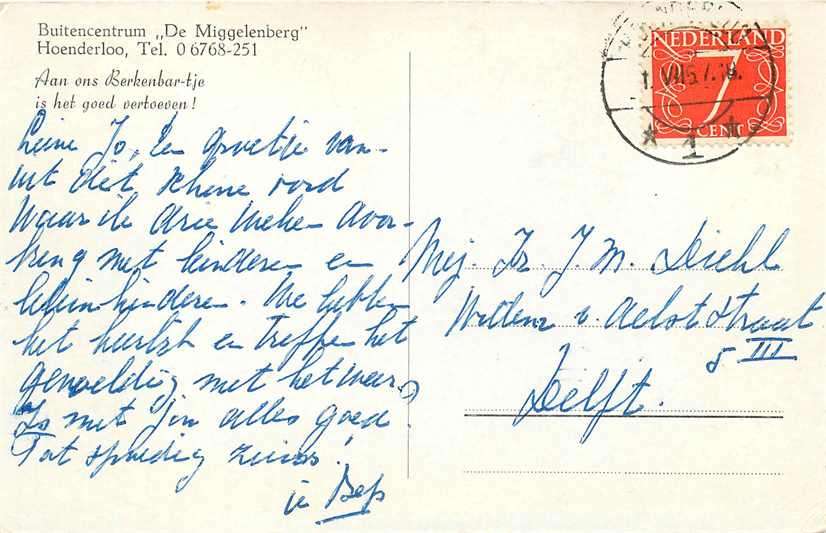 Buitencentrum „De Miggelenberg"
Hoenderloo, Tel. 0 6768-251
Aan ons Berkenbar-tje
is het goed vertoeven!
Lieve Jo, Een groetje van-
uit dit schone oord
waar ik drie weken door-
breng met kinderen en
kleinkinderen. We hebben
het heerlijk en treffen het
geweldig met het weer.
Is met jou alles goed?
Tot spoedig ziens!
je Bep
NEDERLAND
7
CENT
1
Mej. Dr. J. M. Diehl
Willem v. Aelststraat
5 III
Delft.